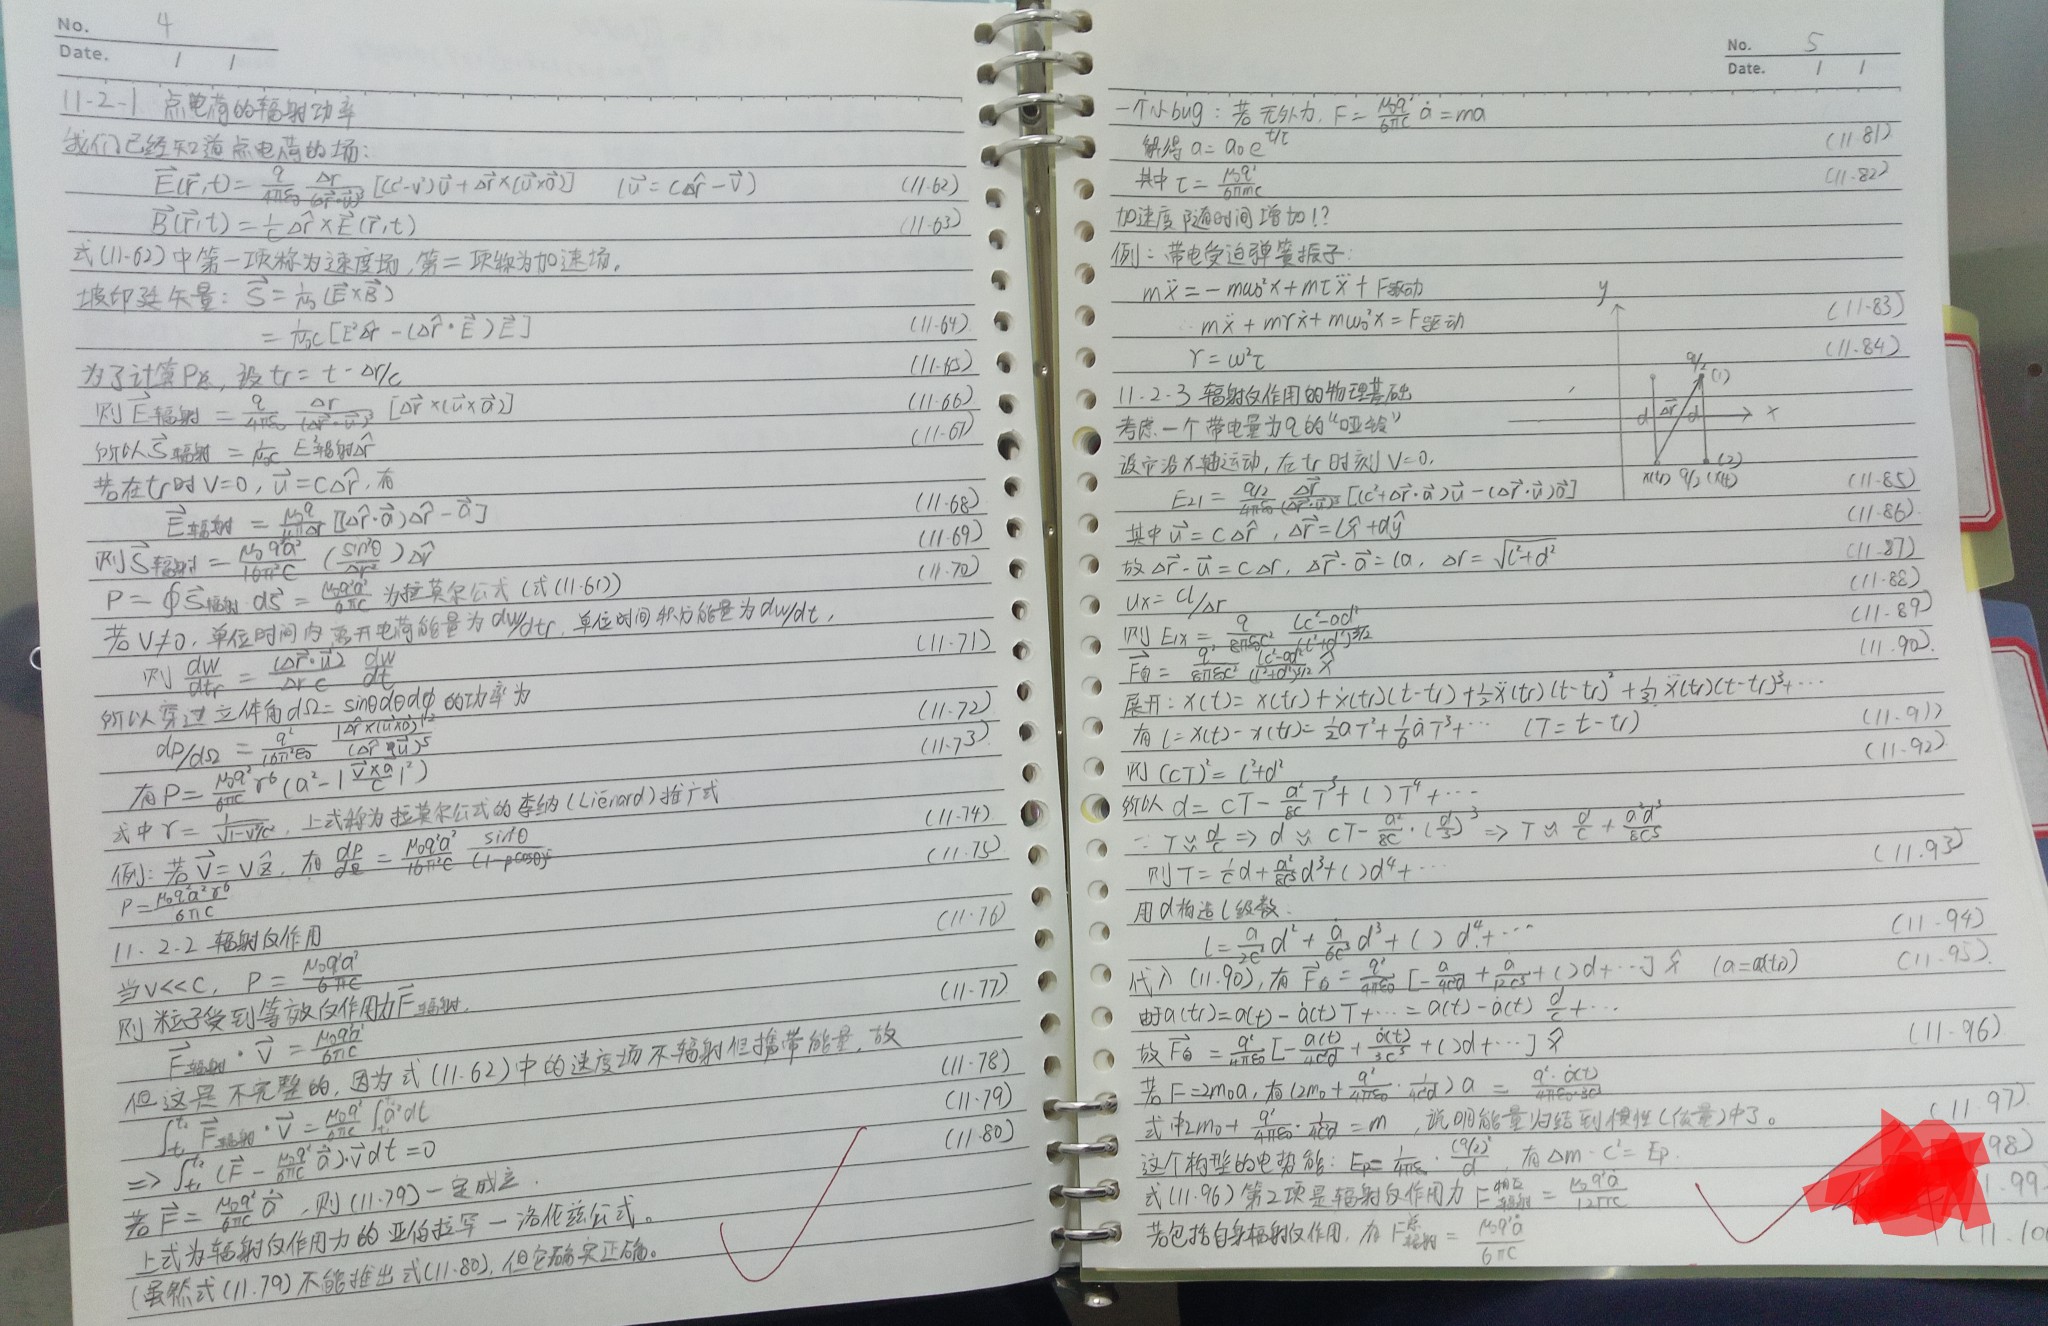 No. 4
Date. / /
11-2-1 点电荷的辐射功率
我们已经知道点电荷的场:
E⃗(r⃗,t)= q/4πε₀ Δr/(Δr⃗·u⃗)³ [(c²-v²)u⃗+Δr⃗×(u⃗×a⃗)] (u⃗=cΔr̂-v⃗) (11.62)
B⃗(r⃗,t)= 1/c Δr̂×E⃗(r⃗,t) (11.63)
式(11-62)中第一项称为速度场,第二项称为加速场.
坡印廷矢量: S⃗=1/μ₀(E⃗×B⃗)
=1/μ₀c[E²Δr̂-(Δr̂·E⃗)E⃗] (11.64)
为了计算P点,设tr=t-Δr/c (11.65)
则E⃗辐射= q/4πε₀ Δr/(Δr⃗·u⃗)³ [Δr⃗×(u⃗×a⃗)] (11.66)
所以S⃗辐射=1/μ₀c E²辐射Δr̂ (11.67)
若在tr时v=0, u⃗=cΔr̂,有
E⃗辐射=μ₀q/4πΔr[(Δr̂·a⃗)Δr̂-a⃗] (11.68)
则S⃗辐射=μ₀q²a²/16π²c (sin²θ/Δr²)Δr̂ (11.69)
P=∮S⃗辐射·dS⃗=μ₀q²a²/6πc 为拉莫尔公式(式(11.61)) (11.70)
若V≠0,单位时间内离开电荷能量为dW/dtr,单位时间积分能量为dW/dt,
则dW/dtr=(Δr⃗·u⃗)/Δr c dW/dt (11.71)
所以穿过立体角dΩ=sinθdθdφ的功率为
dP/dΩ=q²/16π²ε₀ |Δr̂×(u⃗×a⃗)|²/(Δr̂·u⃗)⁵ (11.72)
有P=μ₀q²/6πc γ⁶(a²-|v⃗×a⃗/c|²) (11.73)
式中γ=1/√1-v²/c²,上式称为拉莫尔公式的李纳(Liénard)推广式
例:若v⃗=vẑ,有dP/dΩ=μ₀q²a²/16π²c sin²θ/(1-βcosθ)⁵ (11.74)
P=μ₀q²a²γ⁶/6πc (11.75)
11.2-2 辐射反作用
当v<<c, P=μ₀q²a²/6πc (11.76)
则粒子受到等效反作用力F⃗辐射.
F⃗辐射·v⃗=μ₀q²a²/6πc (11.77)
但这是不完整的,因为式(11.62)中的速度场不辐射但携带能量,故
∫F⃗辐射·v⃗=μ₀q²/6πc∫a²dt (11.78)
⇒∫(F⃗-μ₀q²/6πc ȧ⃗)·v⃗dt=0 (11.79)
若F⃗=μ₀q²/6πc ȧ⃗,则(11.79)一定成立. (11.80)
上式为辐射反作用力的亚伯拉罕-洛伦兹公式。
(虽然式(11.79)不能推出式(11.80),但它确实正确。
No. 5
Date. / /
一个小bug:若无外力,F=μ₀q²/6πc ȧ=ma
解得a=a₀e^t/τ (11.81)
其中τ=μ₀q²/6πmc (11.82)
加速度随时间增加!?
例:带电受迫弹簧振子:
mẍ=-mω₀²x+mτx⃛+F驱动
mẍ+mγẋ+mω₀²x=F驱动 (11.83)
γ=ω²τ (11.84)
11-2-3 辐射反作用的物理基础
考虑一个带电量为q的“哑铃”
设它沿x轴运动,在tr时刻V=0.
y
q/2 (1)
d Δr⃗ d x
x(tr) q/2 (2) x(t)
E21=q/2/4πε₀ Δr/(Δr⃗·u⃗)³[(c²+Δr⃗·a⃗)u⃗-(Δr⃗·u⃗)a⃗] (11.85)
其中u⃗=cΔr̂,Δr⃗=lx̂+dŷ (11.86)
故Δr⃗·u⃗=cΔr, Δr⃗·a⃗=la, Δr=√l²+d² (11.87)
ux=cl/Δr (11.88)
则E1x=q/8πε₀c² lc²-ad²/(l²+d²)^3/2 (11.89)
F⃗自=q²/8πε₀c² lc²-ad²/(l²+d²)^3/2 x̂ (11.90)
展开:x(t)=x(tr)+ẋ(tr)(t-tr)+½ẍ(tr)(t-tr)²+1/3!x⃛(tr)(t-tr)³+…
有l=x(t)-x(tr)=½aT²+1/6ȧT³+… (T=t-tr) (11.91)
则(cT)²=l²+d² (11.92)
所以d=cT-a²/8cT³+( )T⁴+…
∵T≈d/c⇒d≈cT-a²/8c·(d/c)³⇒T≈d/c+a²d³/8c⁵
则T=1/c d+a²/8c⁵d³+( )d⁴+… (11.93)
用d构造l级数.
l=a/2c²d²+ȧ/6c³d³+( )d⁴+… (11.94)
代入(11.90),有F⃗自=q²/4πε₀[-a/4c²d+ȧ/12c³+( )d+…]x̂ (a=a(tr)) (11.95)
由于a(tr)=a(t)-ȧ(t)T+…=a(t)-ȧ(t)d/c+…
故F⃗自=q²/4πε₀[-a(t)/4c²d+ȧ(t)/3c³+( )d+…]x̂ (11.96)
若F=2m₀a,有(2m₀+q²/4πε₀·1/4c²d)a=q²·ȧ(t)/4πε₀·3c³
式中2m₀+q²/4πε₀·1/4c²d=m,说明能量归结到惯性(质量)中了。 (11.97)
这个构型的电势能:Ep=1/4πε₀·(q/2)²/d,有Δm·c²=Ep. 98)
式(11.96)第2项是辐射反作用力F相互辐射=μ₀q²ȧ/12πc 1.99
若包括自身辐射反作用,有F总辐射=μ₀q²ȧ/6πc (11.10